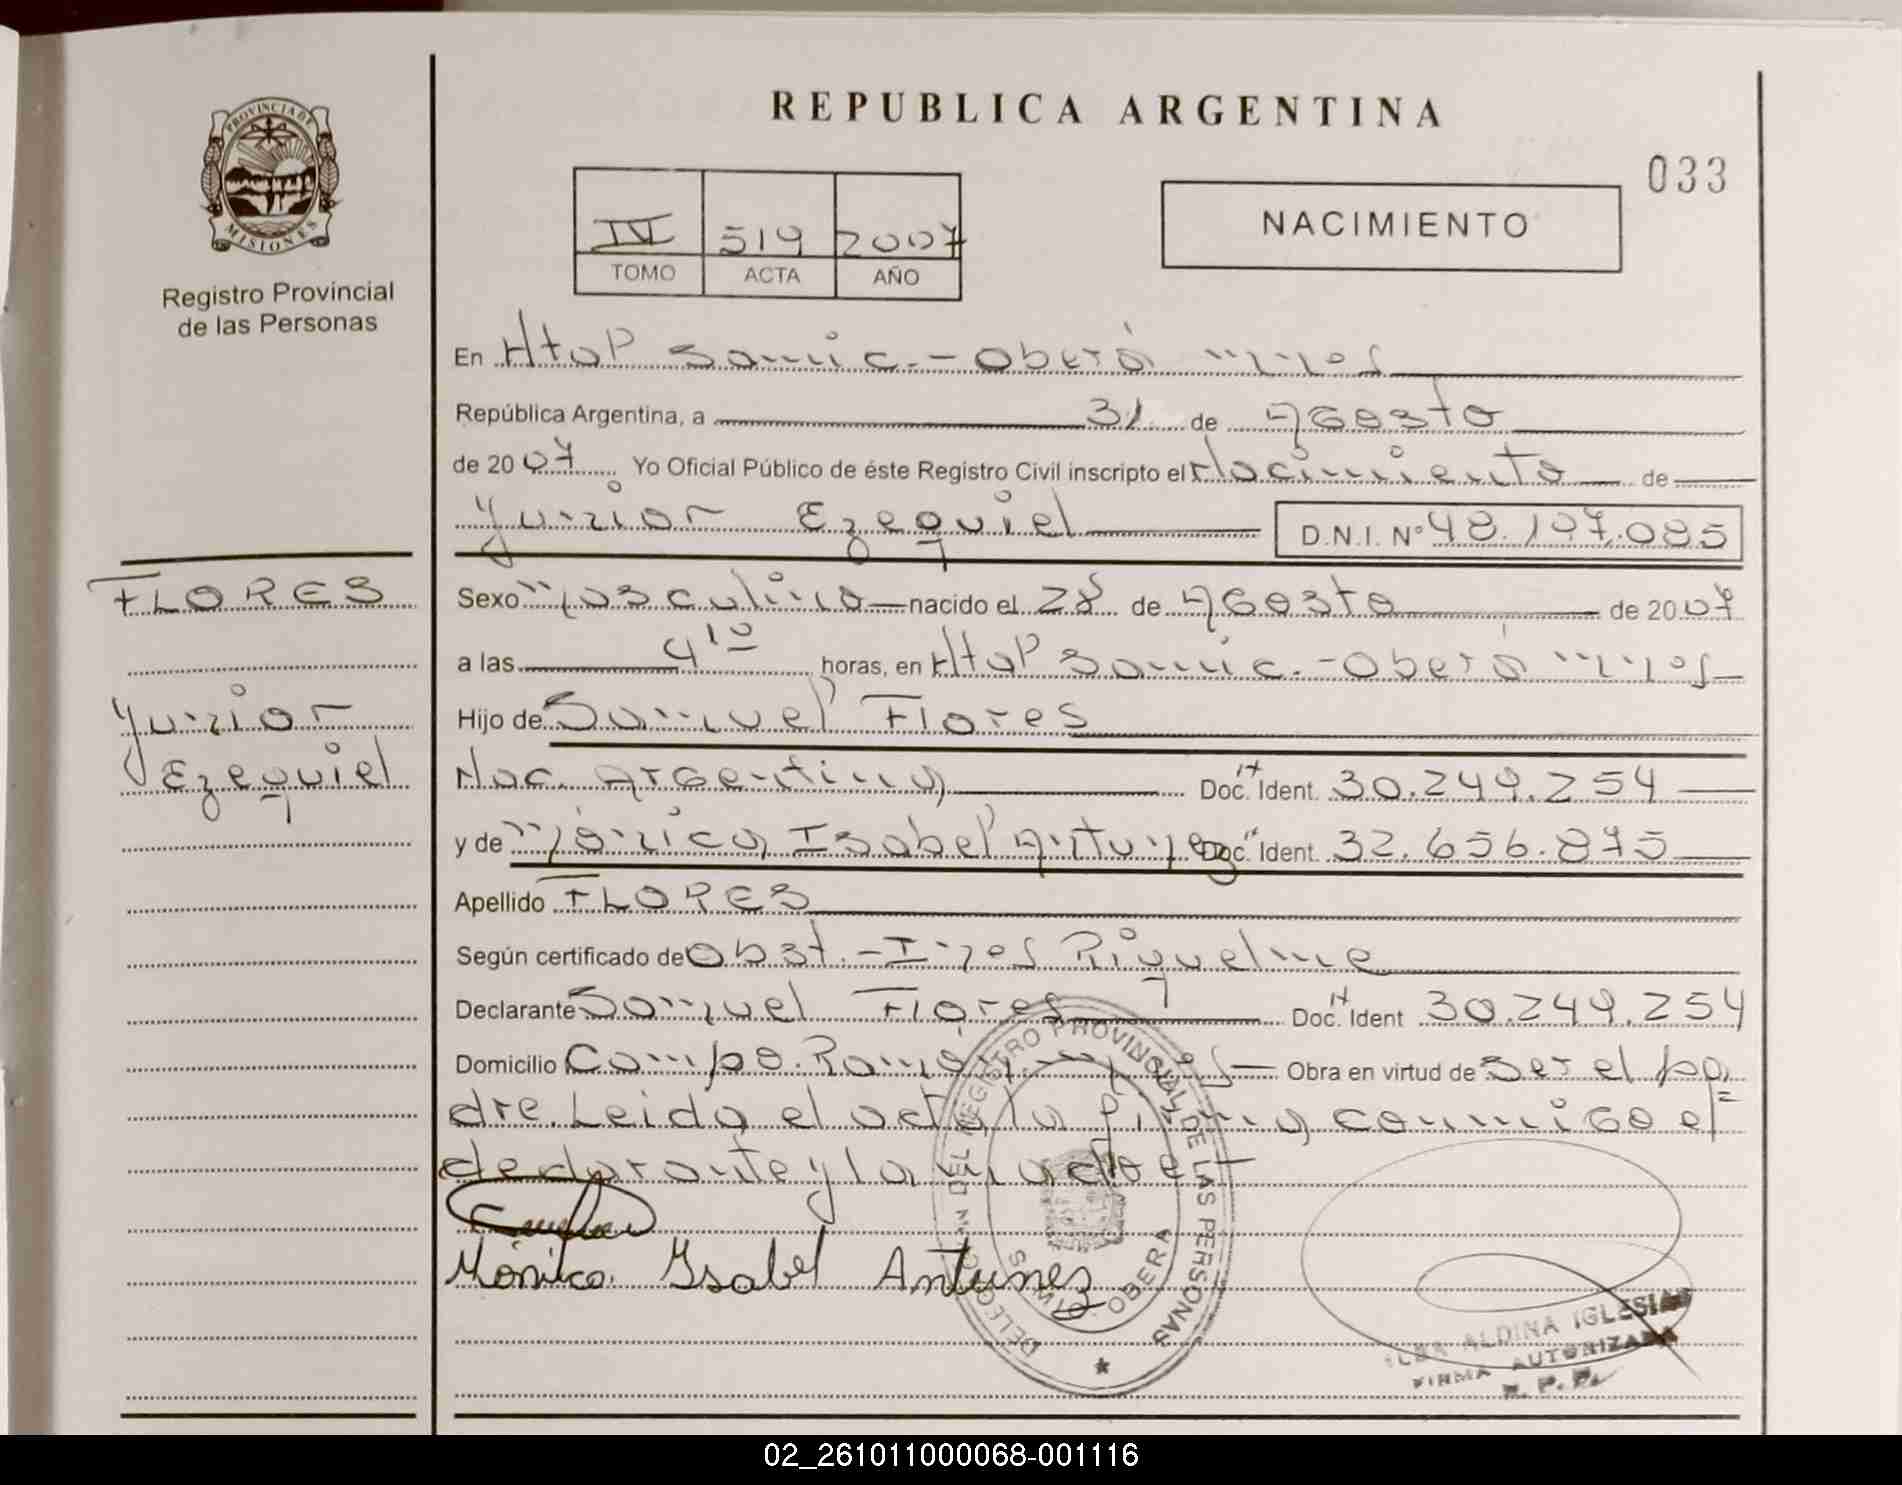 REPUBLICA ARGENTINA
033
PROVINCIA DE
MISIONES
Registro Provincial
de las Personas
IV 519 2007
TOMO ACTA AÑO
NACIMIENTO
En Htal Samic.-Oberá Mnes
República Argentina, a 31 de Agosto
de 2007 Yo Oficial Público de éste Registro Civil inscripto el Nacimiento de
Yunior Ezequiel D.N.I. Nº 48.107.085
FLORES
Yunior
Ezequiel
Sexo Masculino nacido el 28 de Agosto de 2007
a las 4 10 horas, en Htal Samic.-Oberá Mnes
Hijo de Samuel Flores
Nac. Argentina Doc. Ident. 30.249.254
y de Mónica Isabel Antunez Doc. Ident. 32.656.875
Apellido FLORES
Según certificado de Obst.-Ines Riquelme
Declarante Samuel Flores Doc. Ident 30.249.254
Domicilio Campo Ramón Mnes Obra en virtud de ser el pa
dre. Leida el acta la firma conmigo el
declarante y la madre
Mónica Isabel Antunez
DELEGACION DEL REGISTRO PROVINCIAL DE LAS PERSONAS
OBERA
ALDINA IGLESIAS
FIRMA AUTORIZADA
R. P. P.
02_261011000068-001116